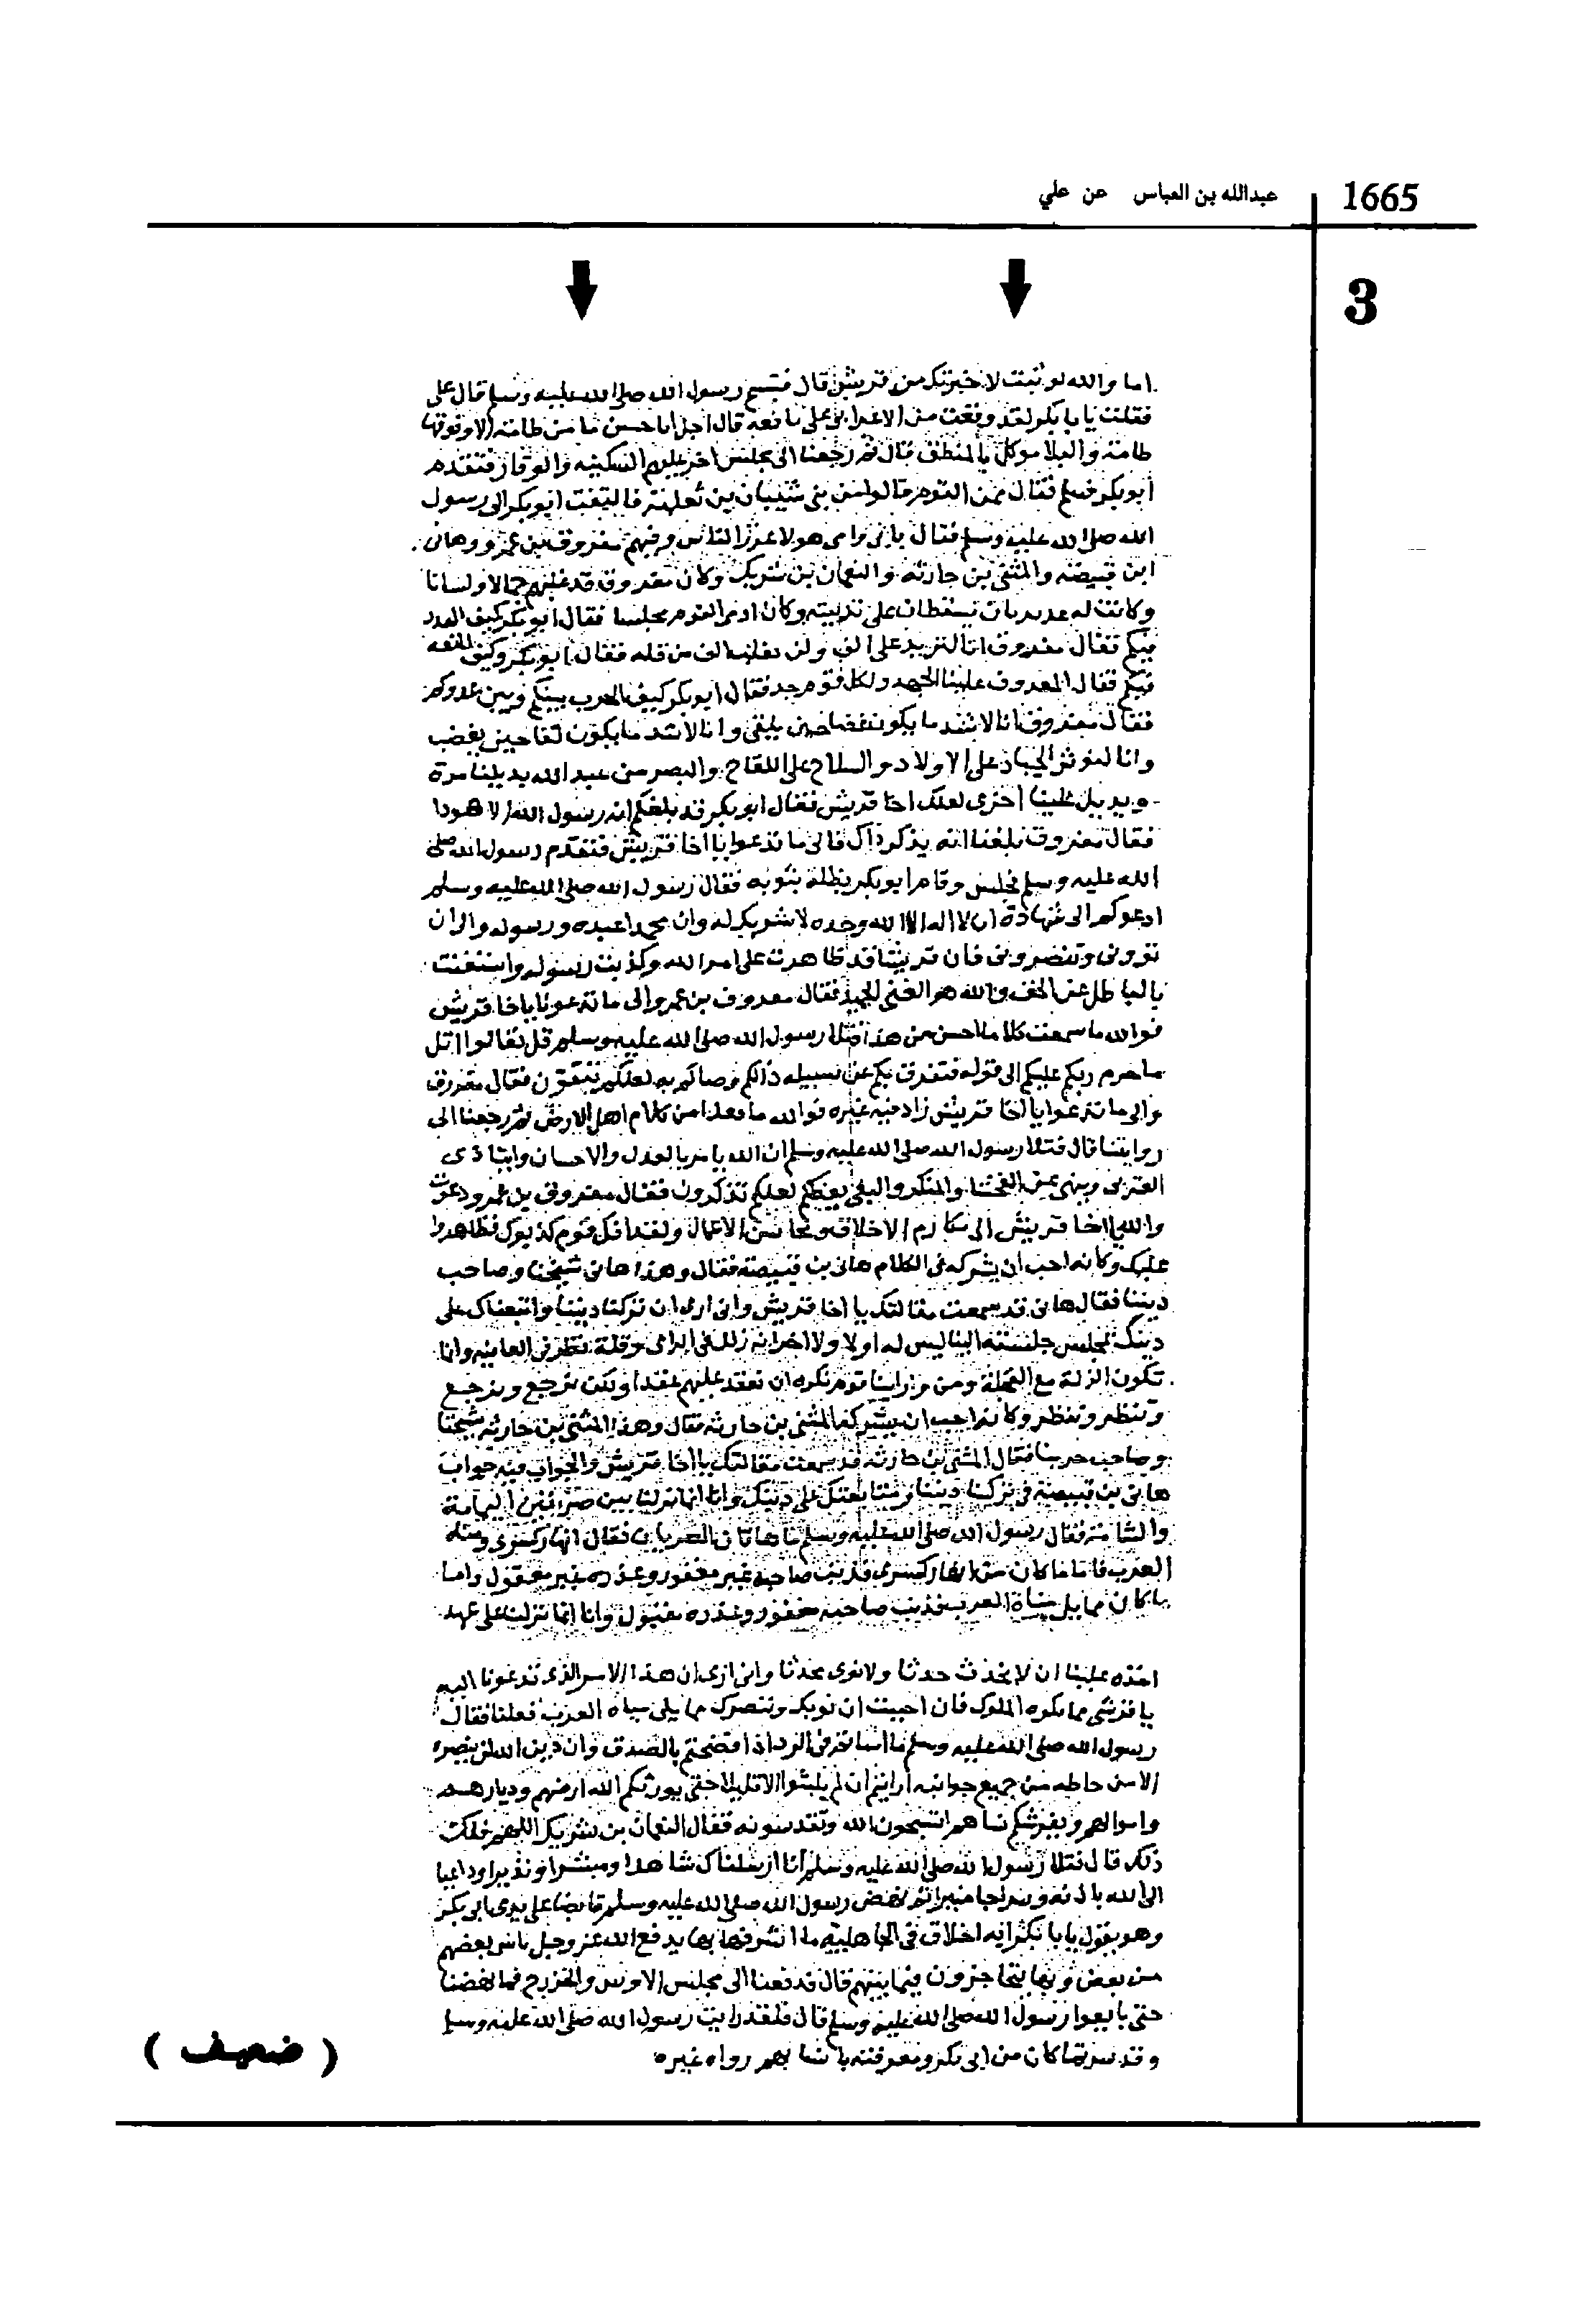 1665
عبدالله بن العباس عن علي
3
اما والله لو ثبت لاخبرتك من قريش قال فتبسم رسول الله صلى الله عليه وسلم قال على
فقلت يا با بكر لقد وقعت من الاعرابى على باقعه قال اجل ابا حسن ما من طامة الا وفوقها
طامة والبلا موكل بالمنطق قال ثم رجعنا الى مجلس اخر عليهم السكينه والوقار فتقدم
أبو بكر فسلم فقال ممن القوم قالوا من بنى شيبان بن ثعلبة فالتفت ابو بكر الى رسول
الله صلى الله عليه وسلم فقال بابى وامى هولا غرر الناس وفيهم مفروق بن عمرو وهانى
ابن قبيصة والمثنى بن حارثه والنعمان بن شريك وكان مفروق قد غلبهم جمالا ولسانا
وكانت له غديرتان تسقطان على تريبته وكان ادنى القوم مجلسا فقال ابو بكر كيف العدد
فيكم فقال مفروق انا لنزيد على الف ولن تغلب الف من قله فقال ابو بكر وكيف المنعه
فيكم فقال المفروق علينا الجهد ولكل قوم جد فقال ابو بكر كيف الحرب بينكم وبين عدوكم
فقال مفروق انا لاشد ما يكون غضبا حين يلقى وانا لاشد ما يكون لقا حين يغضب
وانا لنوثر الجياد على الاولاد والسلاح على اللقاح والنصر من عند الله يديلنا مرة
ويديل علينا اخرى لعلك اخا قريش فقال ابو بكر قد بلغكم انه رسول الله الا هوذا
فقال مفروق بلغنا انه يذكر ذاك فالى ما تدعوا يا اخا قريش فتقدم رسول الله صلى
الله عليه وسلم فجلس وقام ابو بكر يظله بثوبه فقال رسول الله صلى الله عليه وسلم
ادعوكم الى شهادة ان لا اله الا الله وحده لا شريك له وان محمدا عبده ورسوله والى ان
تووونى وتنصرونى فان قريشا قد ظاهرت على امر الله وكذبت رسوله واستغنت
بالباطل عن الحق والله هو الغنى الحميد فقال مفروق بن عمرو الى ما تدعونا يا اخا قريش
فوالله ما سمعت كلاما احسن من هذا فتلا رسول الله صلى الله عليه وسلم قل تعالوا اتل
ما حرم ربكم عليكم الى قوله فتفرق بكم عن سبيله ذالكم وصاكم به لعلكم تتقون فقال مفروق
والى ما تدعوا يا اخا قريش زاد فيه غيره فوالله ما هذا من كلام اهل الارض ثم رجعنا الى
روايتنا قال فتلا رسول الله صلى الله عليه وسلم ان الله يامر بالعدل والاحسان وايتا ذى
القربى وينهى عن الفحشا والمنكر والبغى يعظكم لعلكم تذكرون فقال مفروق بن عمرو دعوت
والله يا اخا قريش الى مكارم الاخلاق ومحاسن الاعمال ولقد افك قوم كذبوك وظاهروا
عليك وكانه احب ان يشركه فى الكلام هانى بن قبيصة فقال وهذا هانى شيخنا وصاحب
ديننا فقال هانى قد سمعت مقالتك يا اخا قريش وانى ارى ان تركنا ديننا واتبعناك على
دينك لمجلس جلسته الينا ليس له اولا ولا اخر انه زلل فى الراى وقلة نظر فى العاقبه وانما
تكون الزلة مع العجلة ومن وراينا قوم نكره ان نعقد عليهم عقدا ولكن نرجع وترجع
وتنظر وننظر وكانه احب ان يشركه المثنى بن حارثه فقال وهذا المثنى بن حارثه شيخنا
وصاحب حربنا فقال المثنى بن حارثه قد سمعت مقالتك يا اخا قريش والجواب فيه جواب
هانى بن قبيصة فى تركنا ديننا ومتابعتك على دينك وانا انما نزلنا بين صريين اليمامة
والشامة فقال رسول الله صلى الله عليه وسلم ما هاتان الصريان فقال انهار كسرى ومياه
العرب فاما ما كان من انهار كسرى فذنب صاحبه غير مغفور وعذره غير مقبول واما
ما كان مما يلى مياه العرب فذنب صاحبه مغفور وعذره مقبول وانا انما نزلنا على عهد
اخذه علينا ان لا نحدث حدثا ولا نوى محدثا وانى ارى ان هذا الامر الذى تدعونا اليه
يا قرشى مما يكره الملوك فان احببت ان نويك وننصرك مما يلى مياه العرب فعلنا فقال
رسول الله صلى الله عليه وسلم ما اسأتم فى الرد اذ افصحتم بالصدق وان دين الله لن ينصره
الا من حاطه من جميع جوانبه ارايتم ان لم يلبثوا الا قليلا حتى يورثكم الله ارضهم وديارهم
واموالهم ويفرشكم نساهم اتسبحون الله وتقدسونه فقال النعمان بن شريك اللهم فلك
ذلك قال فتلا رسول الله صلى الله عليه وسلم انا ارسلناك شاهدا ومبشرا ونذيرا وداعيا
الى الله باذنه وسراجا منيرا ثم نهض رسول الله صلى الله عليه وسلم قابضا على يدى ابى بكر
وهو يقول يا با بكر اية اخلاق فى الجاهلية ما اشرفها بها يدفع الله عز وجل باس بعضهم
من بعض وبها يتحاجزون فيما بينهم قال فدفعنا الى مجلس الاوس والخزرج فما نهضنا
حتى بايعوا رسول الله صلى الله عليه وسلم قال فلقد رايت رسول الله صلى الله عليه وسلم
وقد سر بما كان من ابى بكر ومعرفته بانسابهم رواه غيره
( ضعيف )